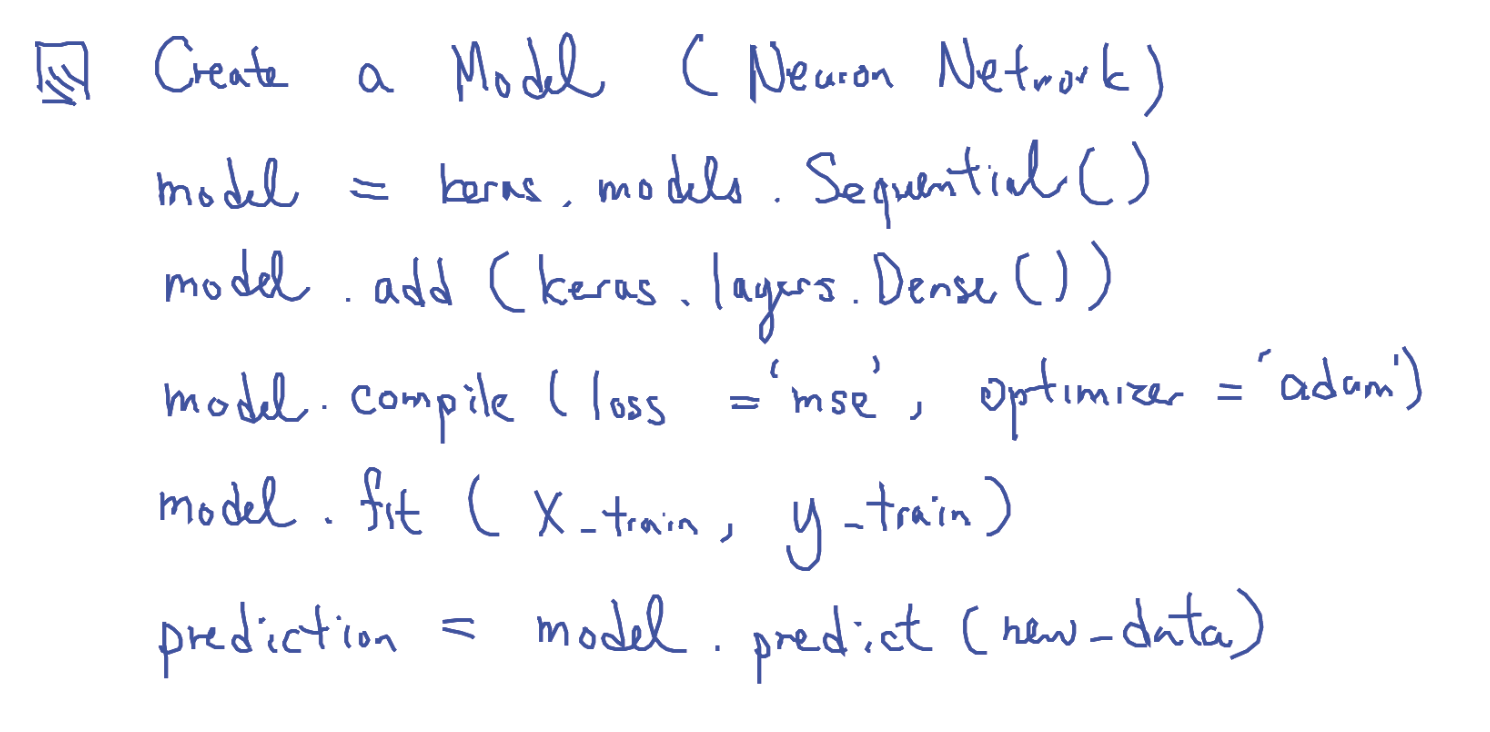 Create a Model (Neuron Network)
model = keras.models.Sequential()
model.add(keras.layers.Dense())
model.compile(loss = 'mse', optimizer = 'adam')
model.fit(X_train, y_train)
prediction = model.predict(new_data)